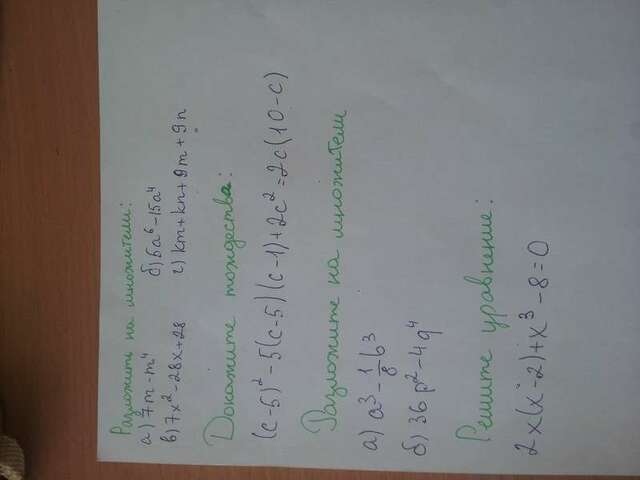 Разложить на множители:
а) 7m - m⁴ б) 5a⁶ - 15a⁴
в) 7x² - 28x + 28 г) km + kn + 9m + 9n
Докажите тождества:
(c-5)² - 5(c-5)(c-1) + 2c² = 2c(10-c)
Разложите на множители
а) a³ - 1/8 b³
б) 36p² - 4q⁴
Решите уравнение:
2x(x-2) + x³ - 8 = 0